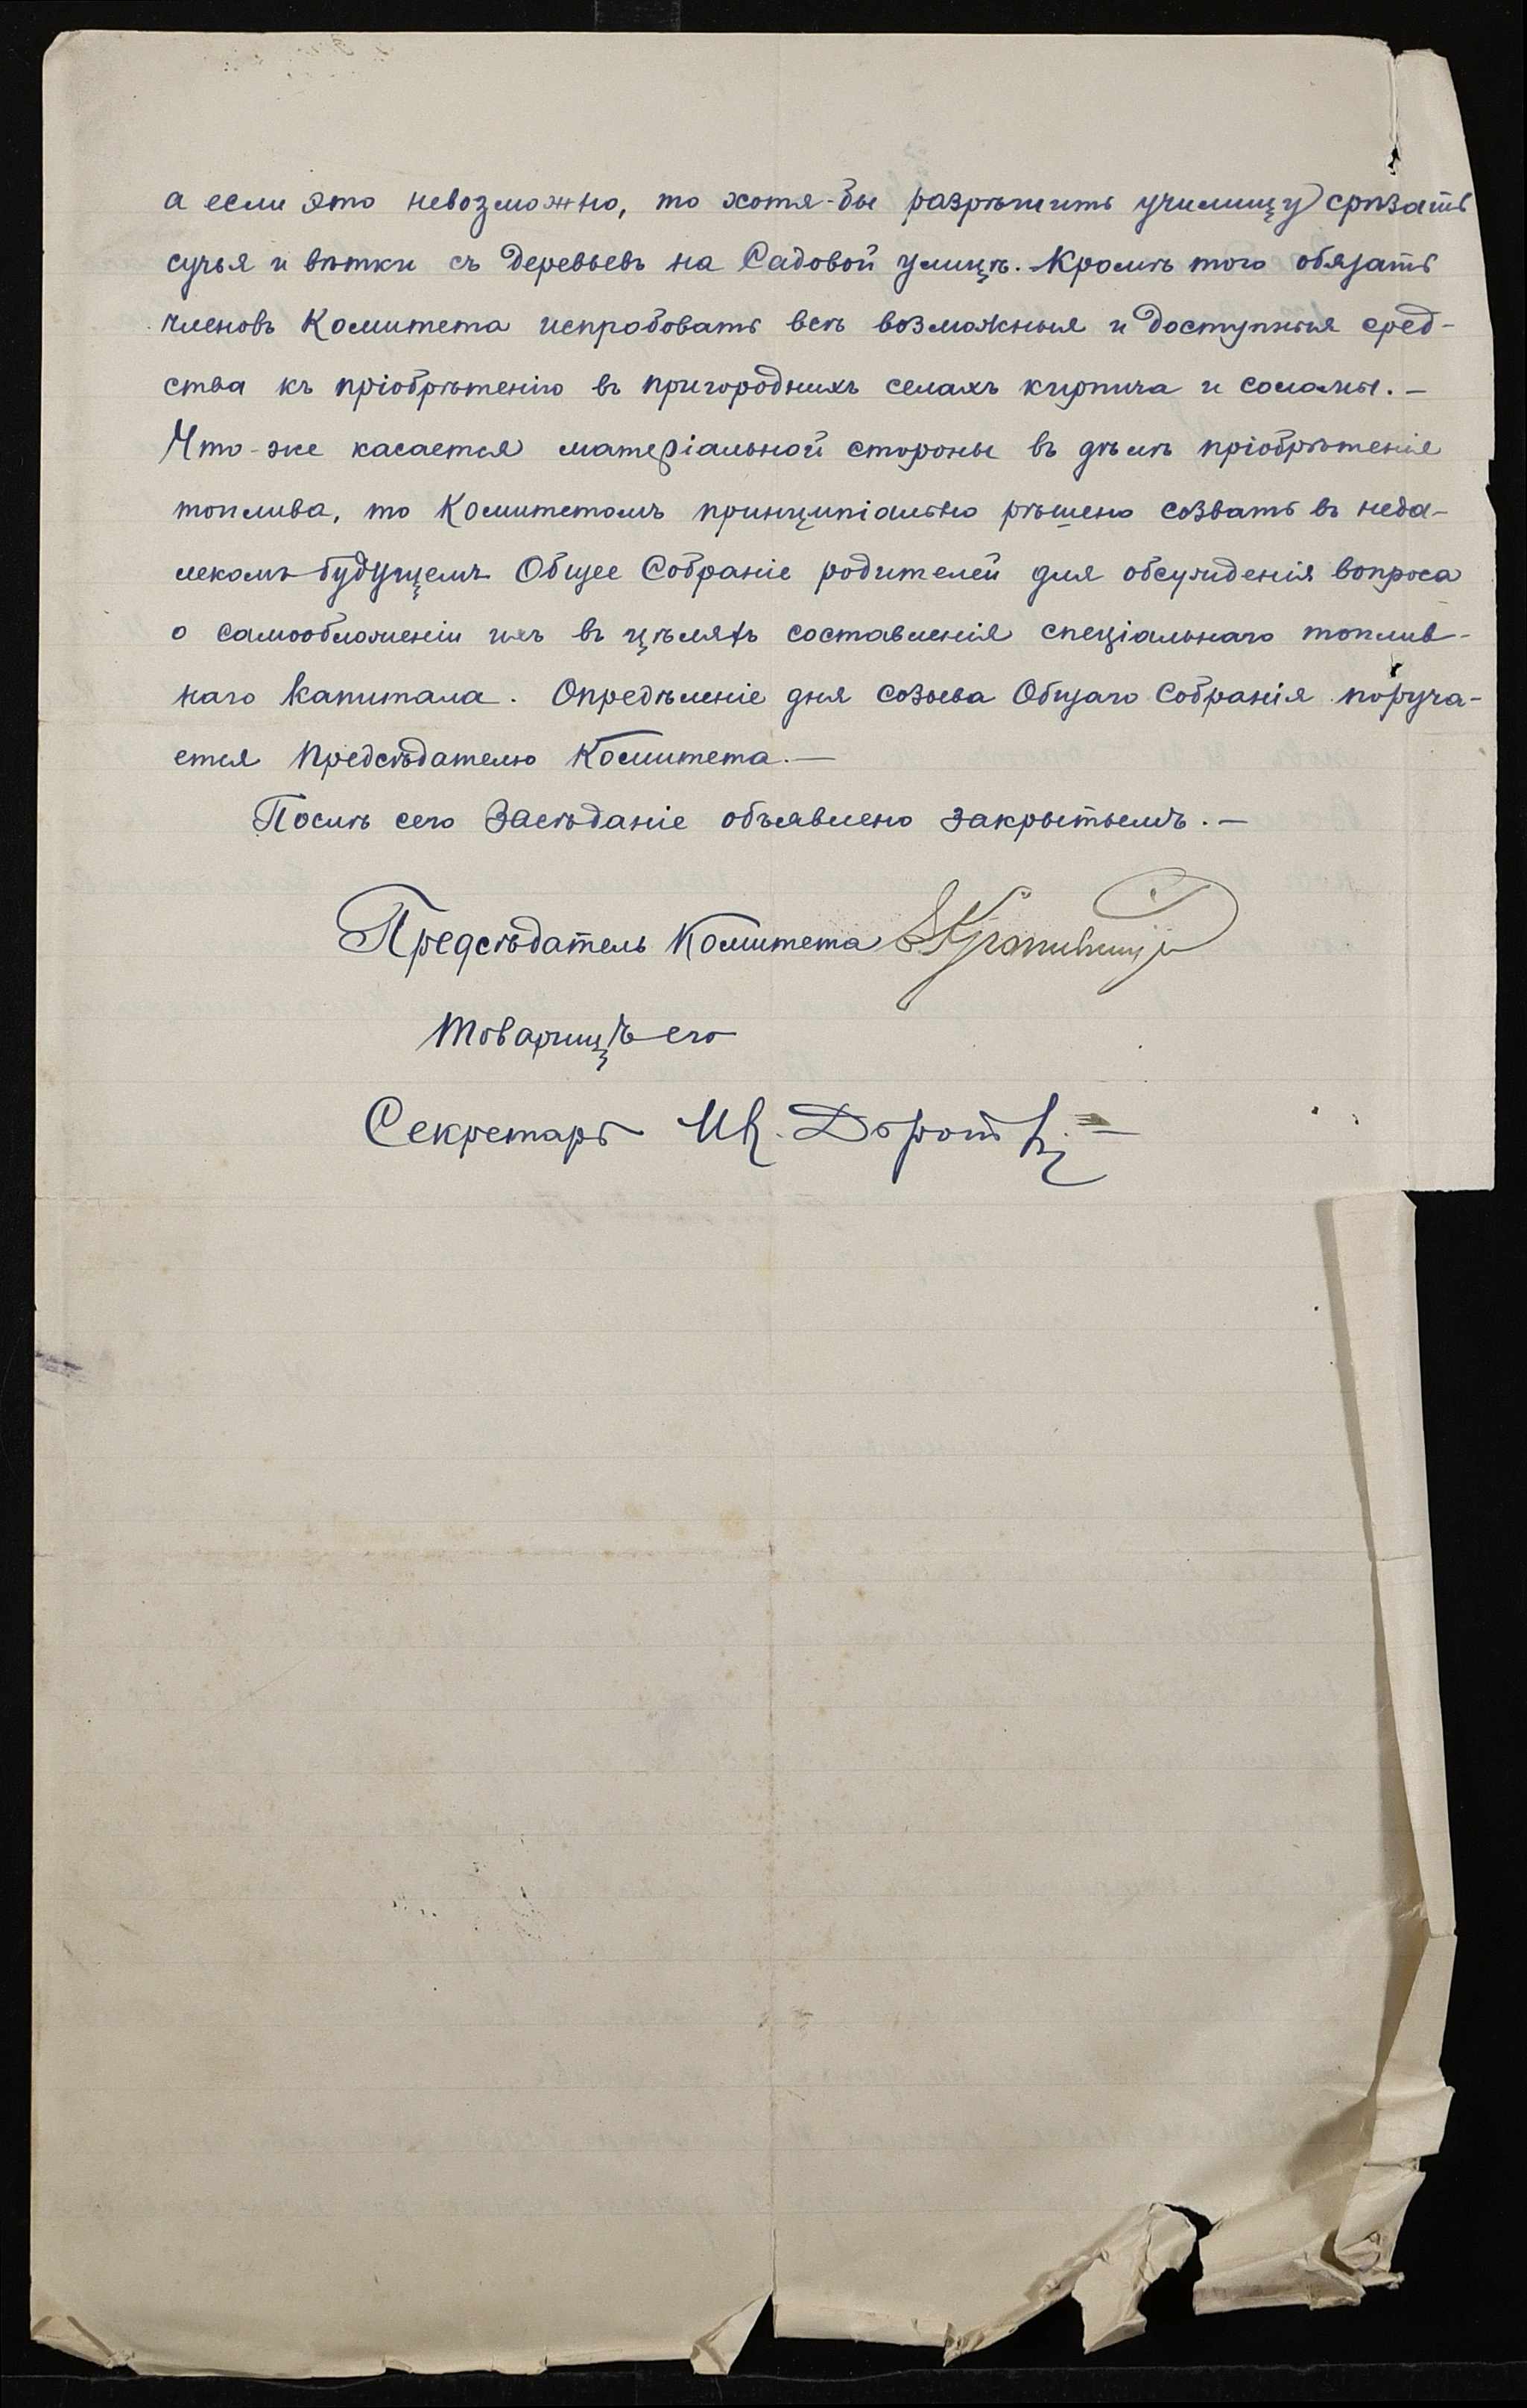 а если это невозможно, то хотя-бы разрѣшить училищу срѣзать
сучья и вѣтки съ деревьевъ на Садовой улицѣ. Кромѣ того обязать
членовъ Комитета испробовать всѣ возможныя и доступныя сред-
ства къ пріобрѣтенію въ пригороднихъ селахъ кирпича и соломы. –
Что-же касается матеріальной стороны въ дѣлѣ пріобрѣтенія
топлива, то Комитетомъ принципіально рѣшено созвать въ неда-
лекомъ будущемъ Общее Собраніе родителей для обсужденія вопроса
о самообложеніи ихъ въ цѣляхъ составленія спеціальнаго топлив-
наго капитала. Опредѣленіе дня созыва Общаго Собранія поруча-
ется Предсѣдателю Комитета. –
Послѣ сего Засѣданіе объявлено закрытымъ. –
Предсѣдатель Комитета
Товарищъ его
Секретарь Ив.